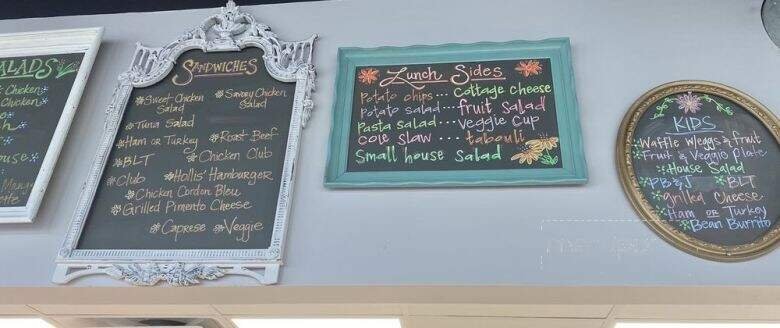 ALADS
Chicken
Chicken
o
sh
ouse
Man
ette
SANDWICHES
Sweet Chicken Salad
Savory Chicken Salad
Tuna Salad
Ham or Turkey
Roast Beef
BLT
Chicken Club
Club
Hollis' Hamburger
Chicken Cordon Bleu
Grilled Pimento Cheese
Caprese
Veggie
Lunch Sides
Potato chips... Cottage cheese
Potato salad.... fruit salad
Pasta salad... Veggie Cup
Cole slaw .... tabouli
Small house salad
KIDS
Waffle w/eggs & fruit
Fruit & Veggie Plate
House Salad
PB & J
BLT
grilled Cheese
Ham or Turkey
Bean Burrito